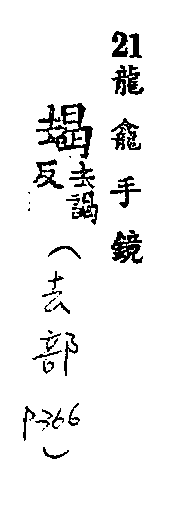 21龍龕手鏡
朅
去謁
反
（去部
p366）